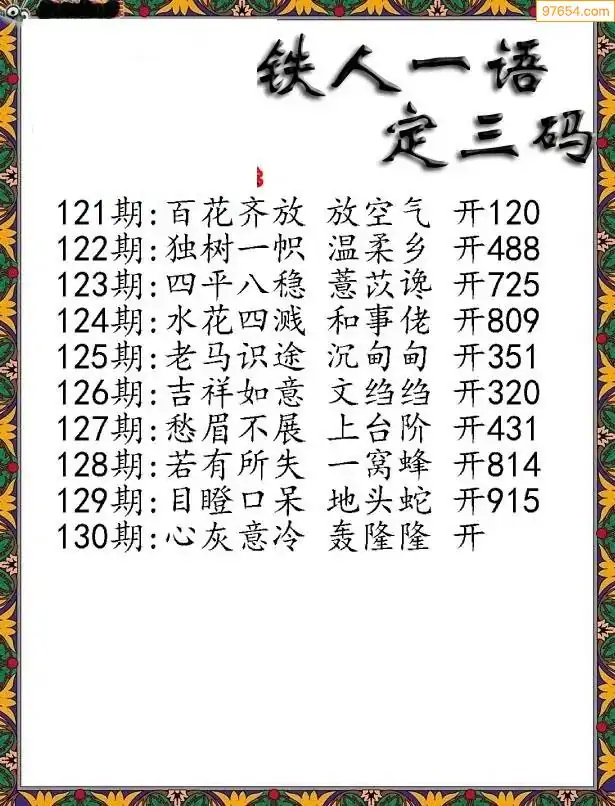 97654.com
铁人一语
定三码
121期:百花齐放 放空气 开120
122期:独树一帜 温柔乡 开488
123期:四平八稳 薏苡谗 开725
124期:水花四溅 和事佬 开809
125期:老马识途 沉甸甸 开351
126期:吉祥如意 文绉绉 开320
127期:愁眉不展 上台阶 开431
128期:若有所失 一窝蜂 开814
129期:目瞪口呆 地头蛇 开915
130期:心灰意冷 轰隆隆 开